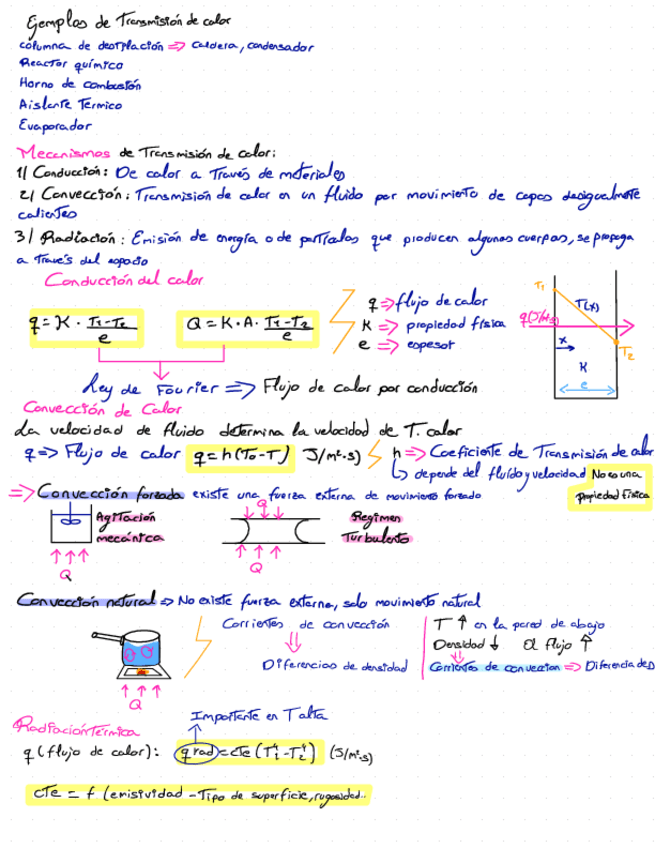 Ejemplos de Transmisión de calor
columna de destilación => Caldera, condensador
Reactor químico
Horno de combustión
Aislante Térmico
Evaporador
Mecanismos de Transmisión de calor:
1/ Conducción: De calor a través de materiales
2/ Convección: Transmisión de calor en un fluido por movimiento de capas desigualmente
calientes
3/ Radiación: Emisión de energía o de partículas que producen algunos cuerpos, se propaga
a través del espacio
Conducción del calor
q = K · T1-T2 / e
Q = K · A · T1-T2 / e
q => flujo de calor
K => propiedad física
e => espesor
T1
T(x)
q(J/m²s)
x
T2
K
e
Ley de Fourier => Flujo de calor por conducción
Convección de Calor
La velocidad de fluido determina la velocidad de T. calor
q => Flujo de calor q = h (To - T) J/m²·s) h => Coeficiente de Transmisión de calor
depende del fluido y velocidad No es una
propiedad física
=> Convección forzada existe una fuerza externa de movimiento forzado
Agitación
mecánica
Q
Q
Regimen
Turbulento
Q
Convección natural => No existe fuerza externa, solo movimiento natural
Corrientes de convección
Diferencias de densidad
T ↑ en la pared de abajo
Densidad ↓ el flujo ↑
Corrientes de conveccion => Diferencia de D
Q
Radiación Térmica
Importante en T alta
q (flujo de calor): q rad = cte (T1⁴ - T2⁴) (J/m²·s)
cTe = f (emisividad - Tipo de superficie, rugosidad..